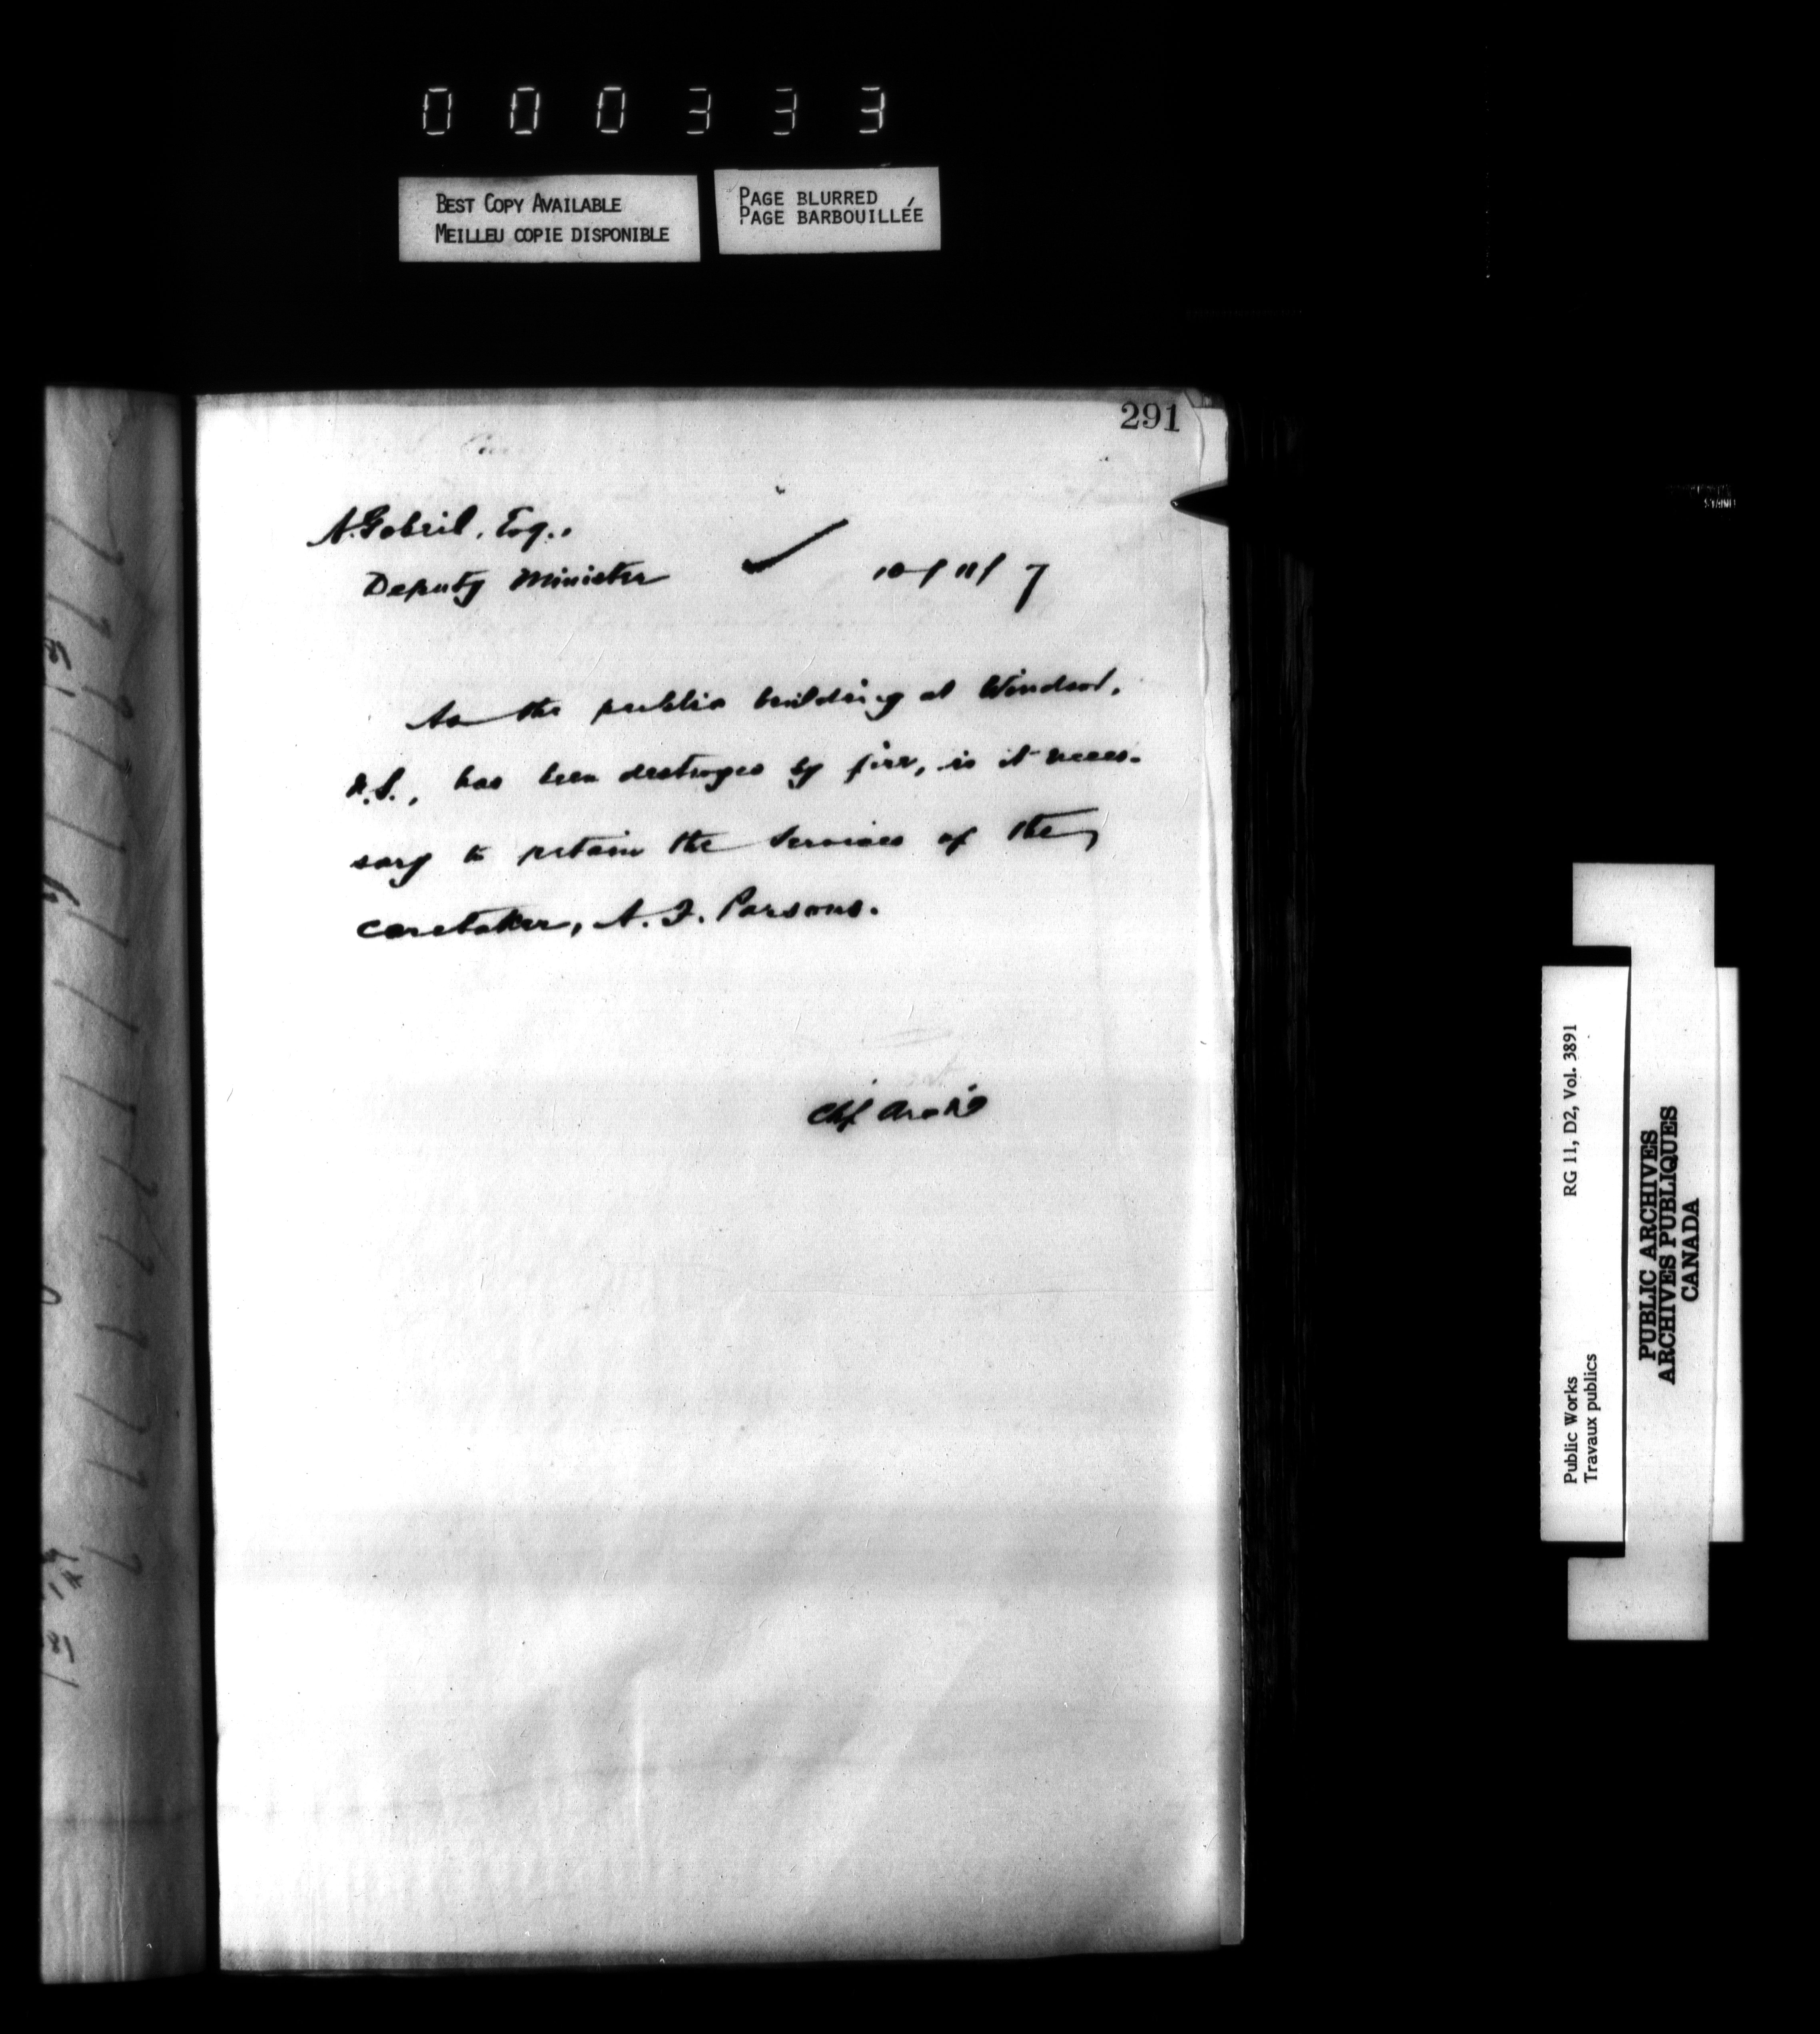 000333
BEST COPY AVAILABLE
MEILLEU COPIE DISPONIBLE
PAGE BLURRED
PAGE BARBOUILLÉE
291
A. Gobeil, Esq.,
Deputy Minister
10/11/7
As the public building at Windsor,
N.S., has been destroyed by fire, is it neces-
sary to retain the services of the
caretaker, A. F. Parsons.
Chf Archt
Public Works
Travaux publics
RG 11, D2, Vol. 3891
PUBLIC ARCHIVES
ARCHIVES PUBLIQUES
CANADA